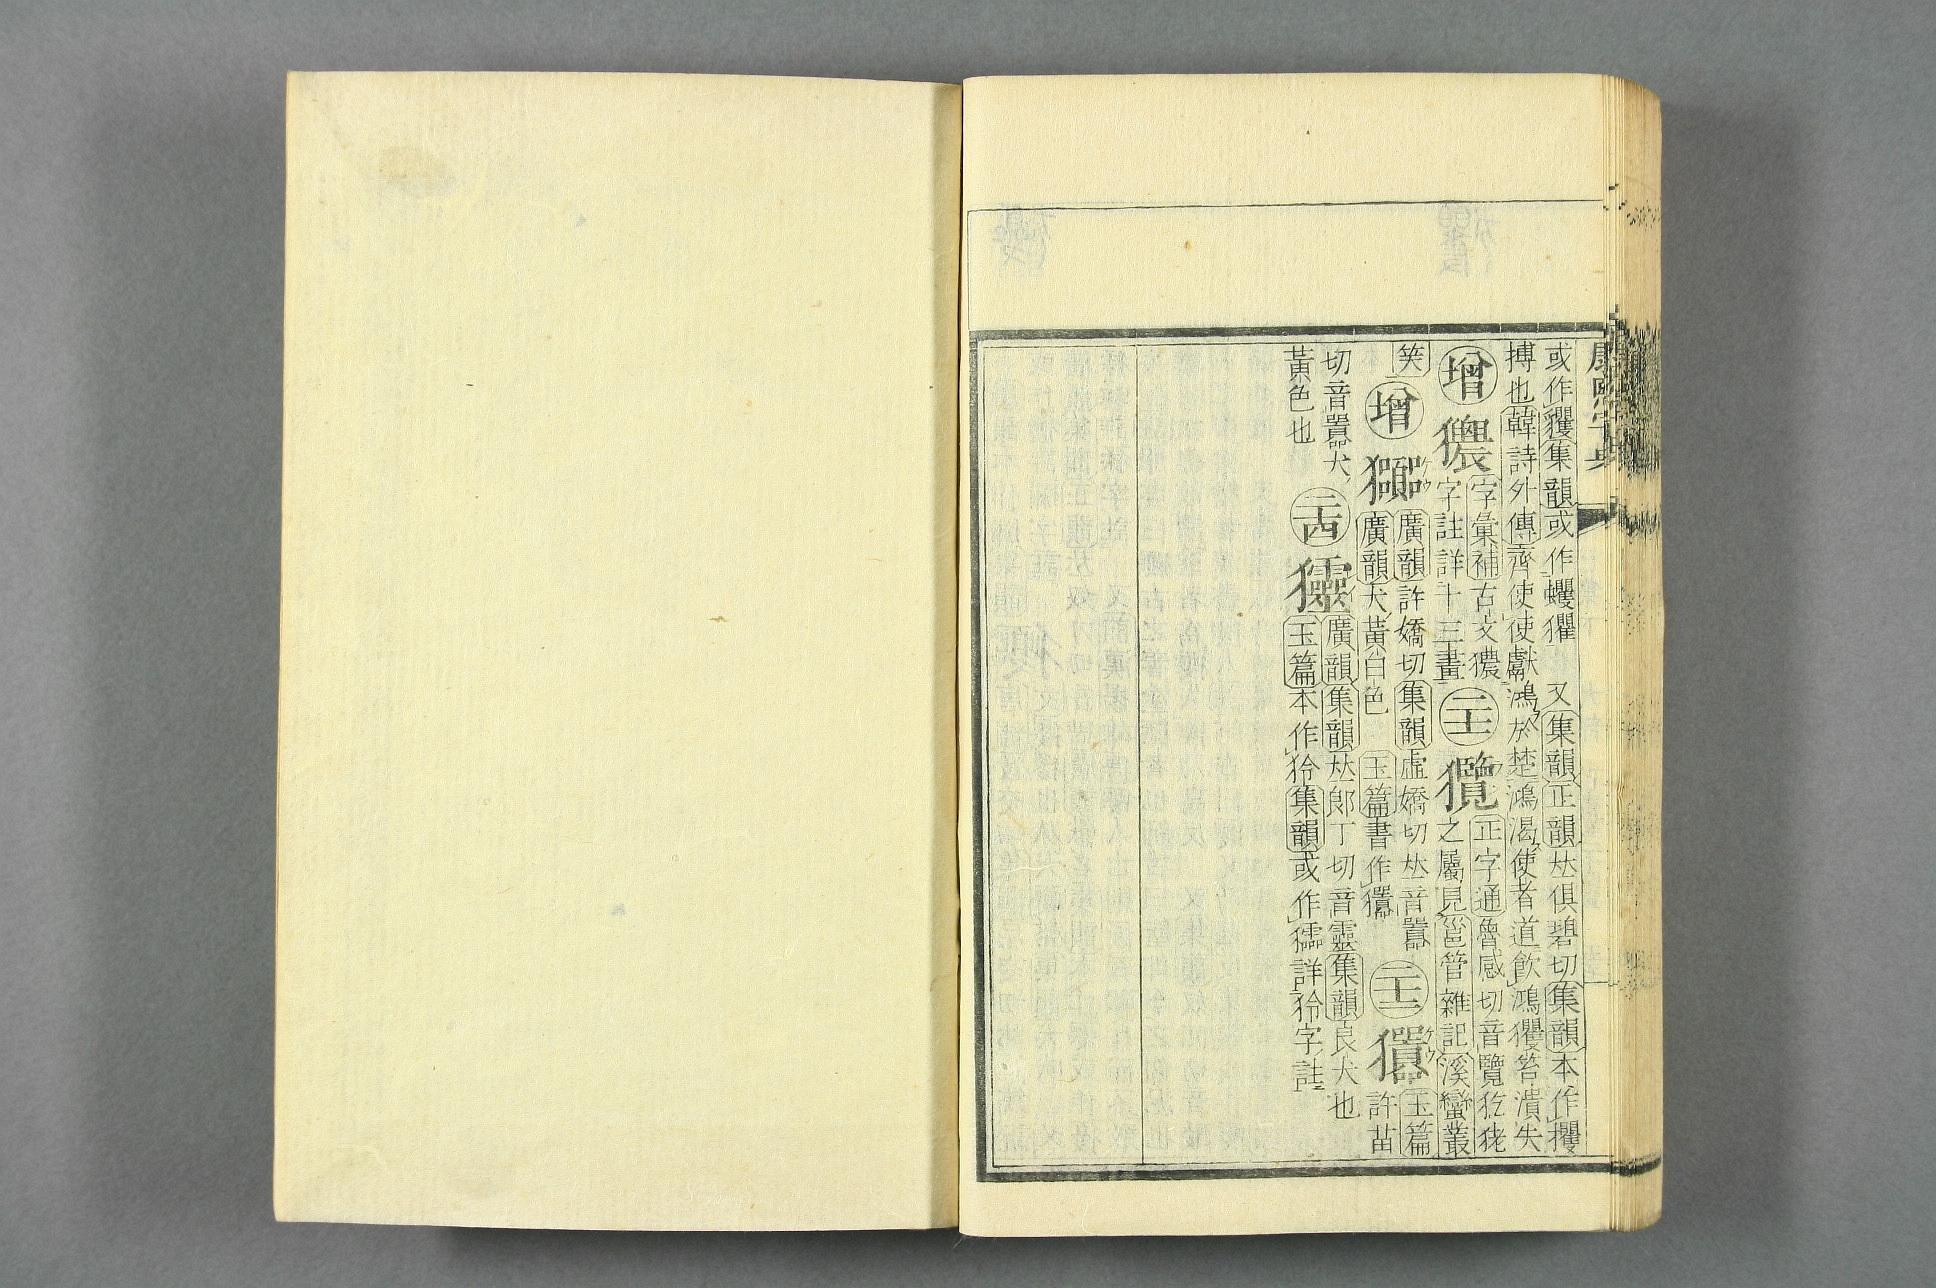 康熙字典
或作玃集韻或作蠼㺢　又集韻正韻𠀤俱碧切集韻本作攫
搏也韓詩外傳齊使使獻鴻於楚鴻渴使者道飮鴻玃笞潰失
增
字彙補古文獳
字註詳十三畫
二十一
㩜
正字通魯感切音覽犵狫
之屬見峝管雜記溪蠻叢
笑
增
ケウ
廣韻許嬌切集韻虛嬌切𠀤音囂
廣韻犬黃白色　玉篇書作獢
二十二
ケウ
玉篇
許苗
切音囂犬
黃色也
二十四
廣韻集韻𠀤郎丁切音靈集韻良犬也
玉篇本作狑集韻或作㺡詳狑字註